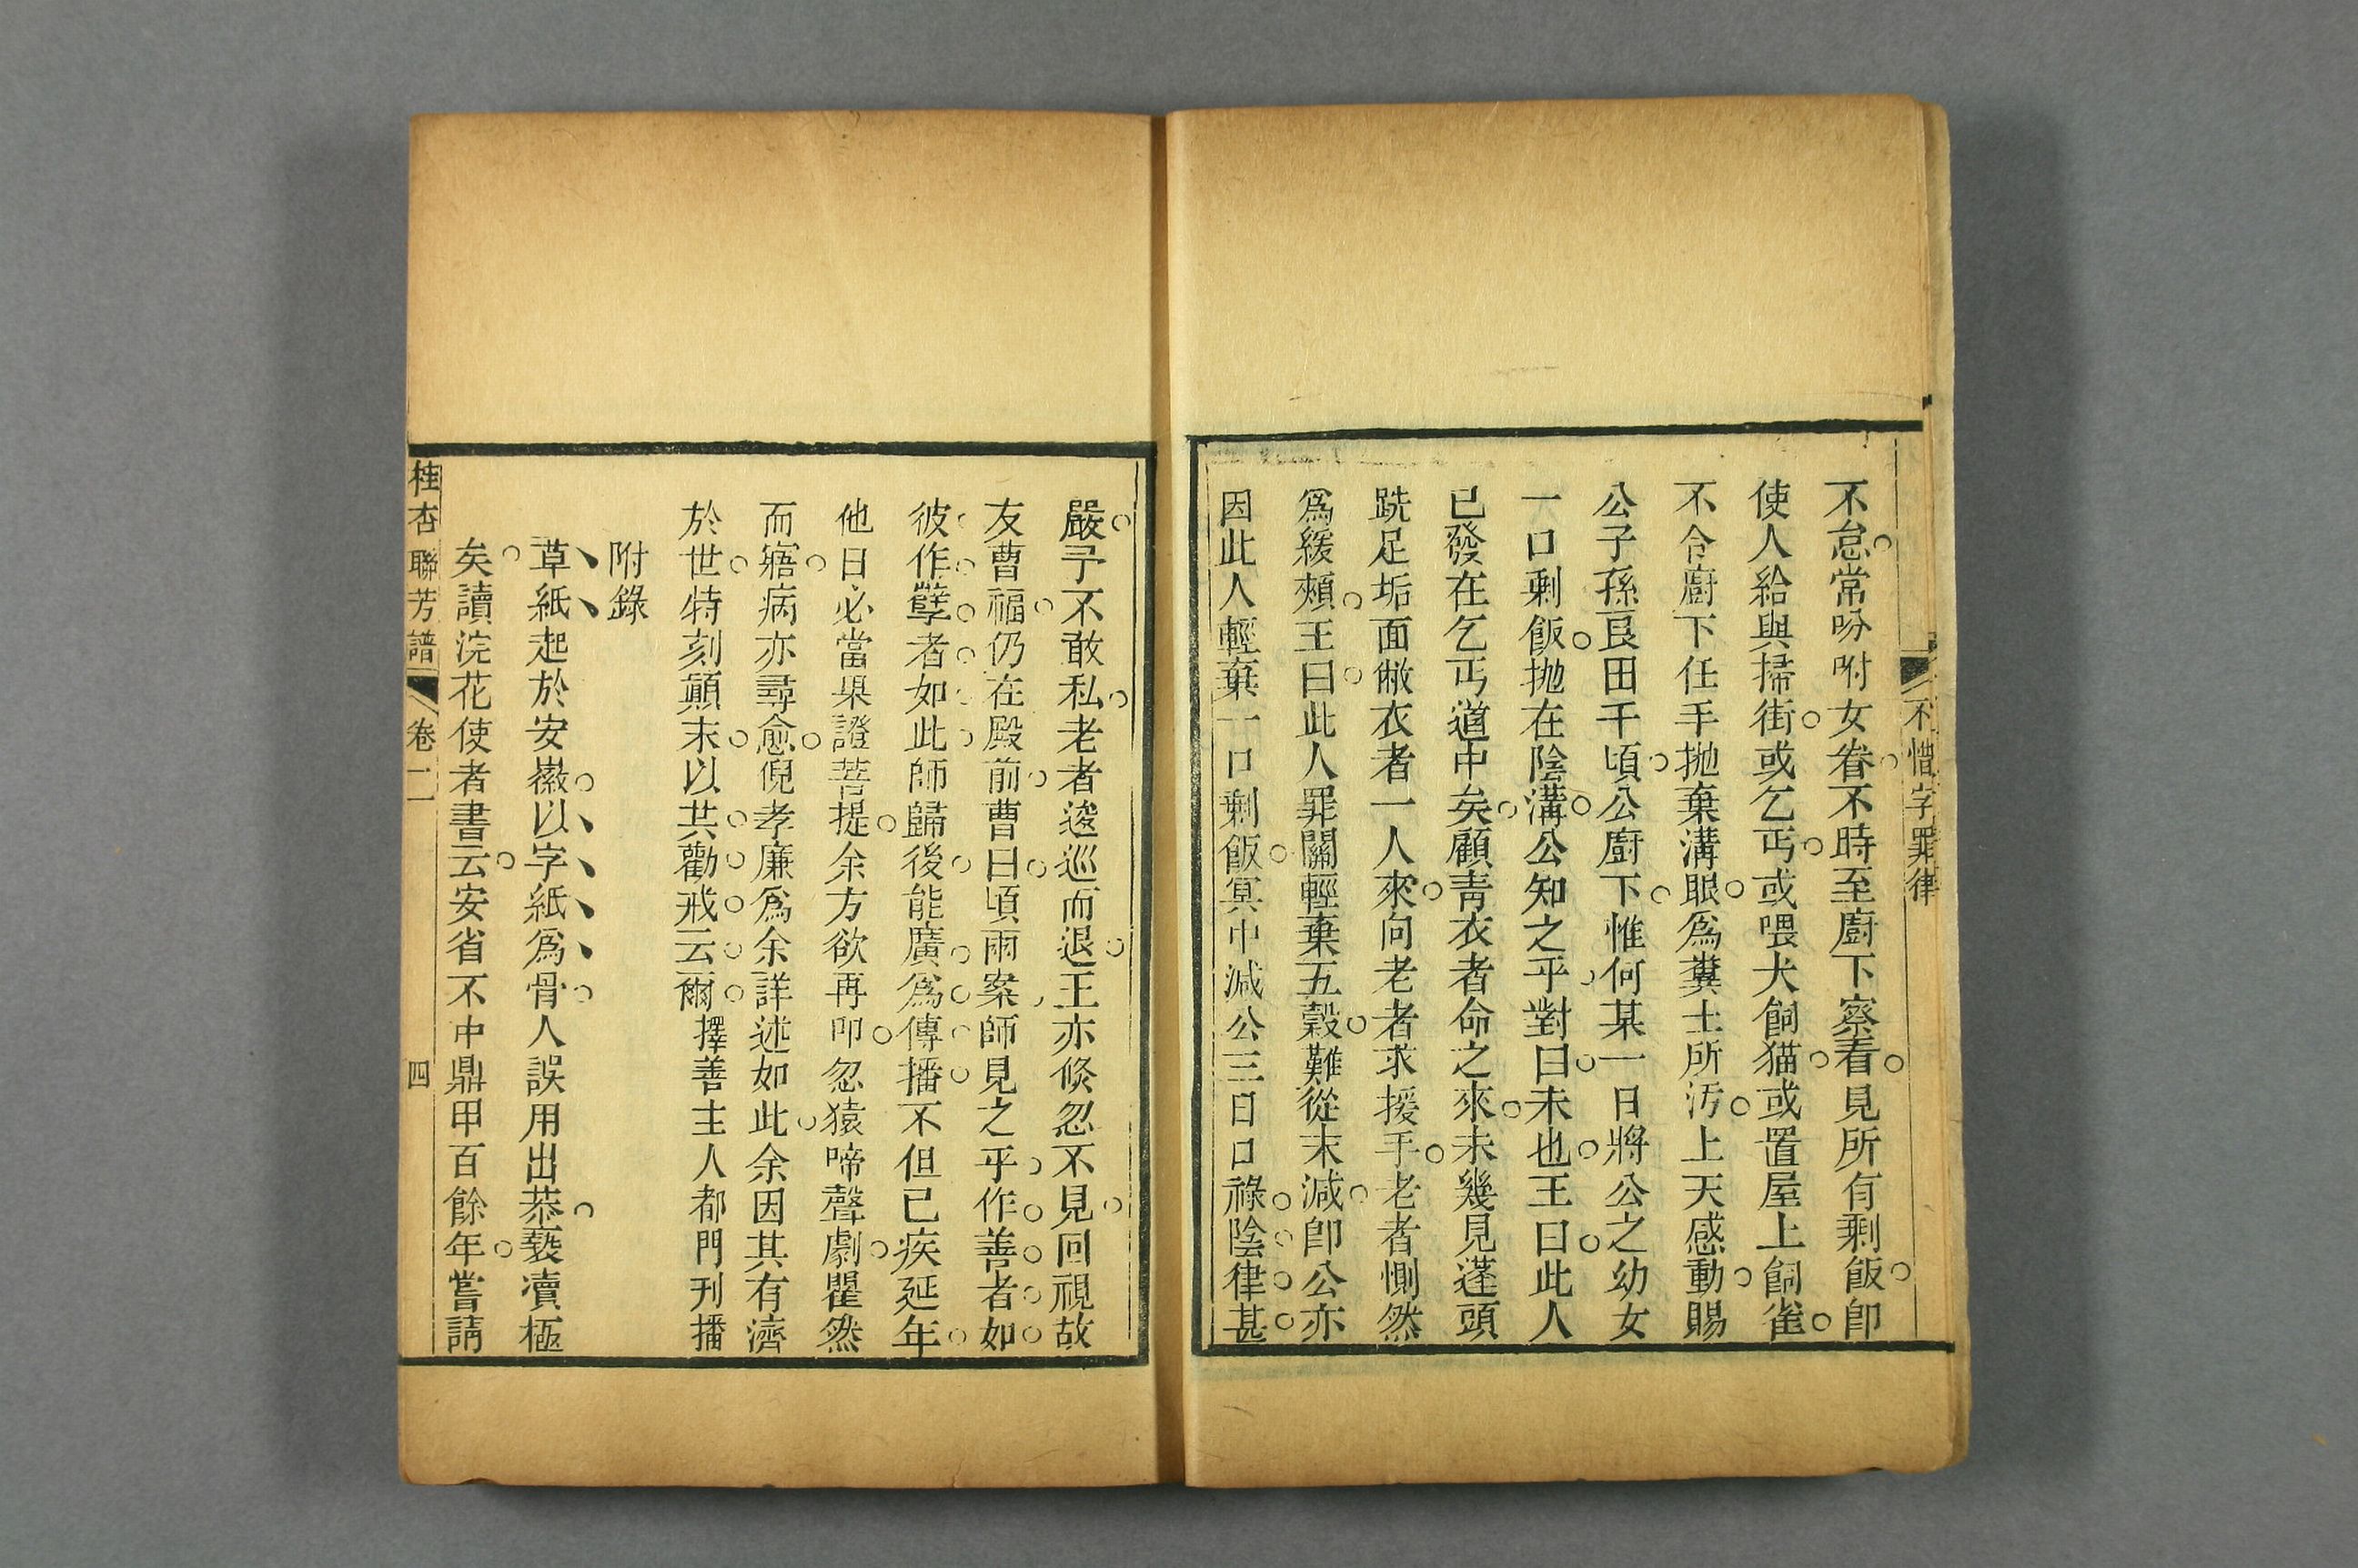 不惜字罪律
不怠常吩咐女眷不時至廚下察看見所有剩飯卽
使人給與掃街或乞丐或喂犬飼猫或置屋上飼雀
不令廚下任手抛棄溝眼爲糞土所汚上天感動賜
公子孫良田千頃公廚下惟何某一日將公之幼女
一口剩飯抛在陰溝公知之乎對曰未也王曰此人
已發在乞丐道中矣顧靑衣者命之來未幾見蓬頭
跣足垢面敝衣者一人來向老者求援手老者惻然
爲緩頰王曰此人罪關輕棄五榖難從末減卽公亦
因此人輕棄一口剩飯冥中減公三日口祿陰律甚
嚴予不敢私老者逡巡而退王亦倐忽不見回視故
友曹福仍在殿前曹曰頃兩案師見之乎作善者如
彼作孽者如此師歸後能廣爲傳播不但已疾延年
他日必當果證菩提余方欲再叩忽猿啼聲劇瞿然
而寤病亦尋愈倪孝廉爲余詳述如此余因其有濟
於世特刻顚末以共勸戒云爾 擇善主人都門刋播
附錄
草紙起於安徽以字紙爲骨人誤用出恭褻凟極
矣讀浣花使者書云安省不中鼎甲百餘年嘗請
桂杏聯芳譜 卷二 四